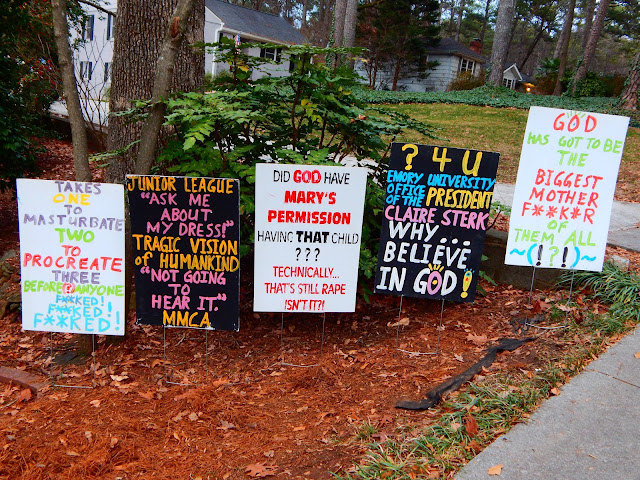 TAKES
ONE TO
MASTURBATE
TWO
TO
PROCREATE
THREE
BEFORE EVERYONE
IS
F**KED!
F**KED!
F**KED!
JUNIOR LEAGUE
"ASK ME
ABOUT
MY DRESS!"
TRAGIC VISION
of HUMANKIND
"NOT GOING
TO
HEAR IT."
MMCA
DID GOD HAVE
MARY'S
PERMISSION
HAVING THAT CHILD
? ? ?
TECHNICALLY...
THAT'S STILL RAPE
ISN'T IT?!
? 4 U
EMORY UNIVERSITY
OFFICE
OF THE PRESIDENT
CLAIRE STERK
WHY...
BELIEVE
IN GOD?!
GOD
HAS GOT TO BE
THE
BIGGEST
MOTHER
F**K*R
OF
THEM ALL
~(!?!)~